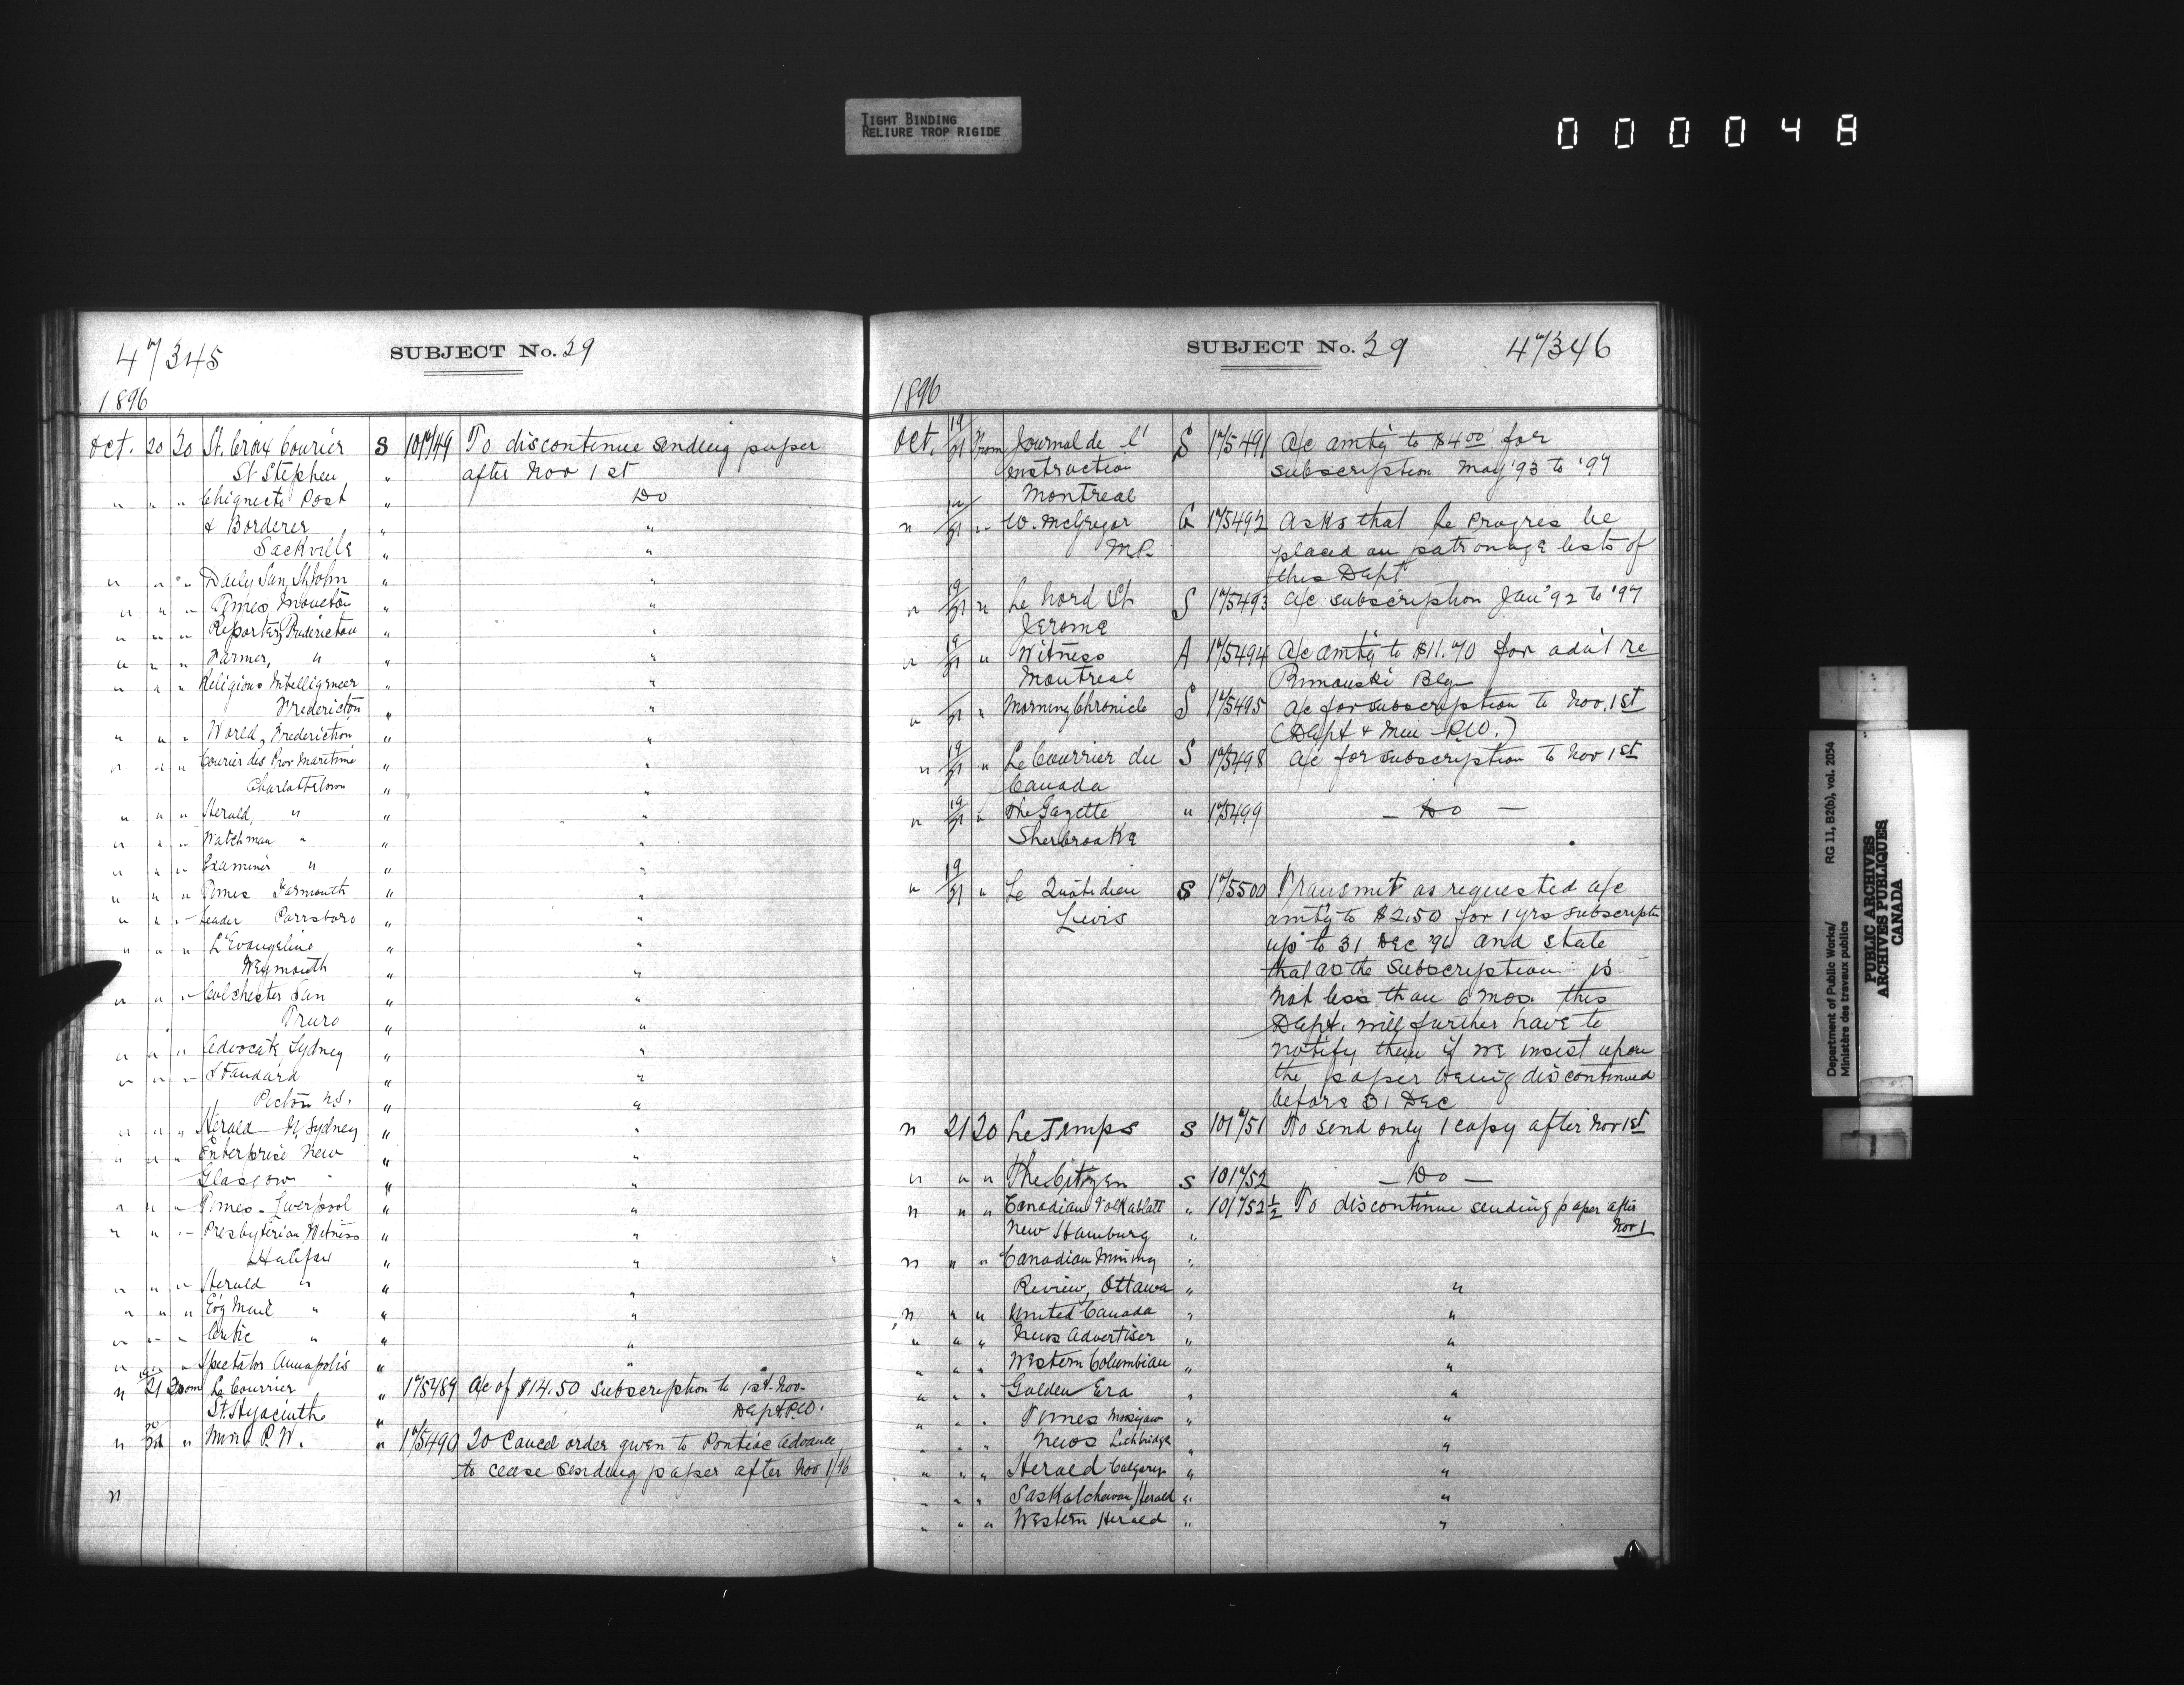 TIGHT BINDING
RELIURE TROP RIGIDE
000048
47345
SUBJECT No. 29
1896
Oct. 20 To St. Croix Courier S 10749 To discontinue sending paper
St Stephen " after Nov 1st
" " " Chignecto Post " Do
& Borderer " "
Sackville " "
" " " Daily Sun, St. John " "
" " " Times Moncton " "
" " " Reporter, Fredericton " "
" " " Farmer, " " "
" " " Religious Intelligencer " "
Fredericton " "
" " " World, Fredericton " "
" " " Courier des Prov Maritime " "
Charlottetown " "
" " " Herald, " " "
" " " Watchman " " "
" " " Examiner " " "
" " " Times Yarmouth " "
" " " Leader Parrsboro " "
" " " L'Evangeline " "
Weymouth " "
" " " Colchester Sun " "
Truro " "
" " " Advocate, Sydney " "
" " " Standard " "
Pictou N.S. " "
" " " Herald N. Sydney " "
" " " Enterprise New " "
Glasgow " "
" " " Times - Liverpool " "
" " " Presbyterian Witness " "
Halifax " "
" " " Herald " " "
" " " Eo'g Mail " " "
" " " Critic " " "
" " " Spectator Annapolis " "
" 19/21 From Le Courrier " 175489 a/c of $14.50 subscription to 1st Nov.
St. Hyacinthe " Dept. P.W.
" 20/21 " Min. P. W. " 175490 To Cancel order given to Pontiac Advance
to cease sending paper after Nov 1/96
"
SUBJECT No. 29
47346
1896
Oct. 19/21 From Journal de l' S 175491 a/c amt'g to $4.00 for
Instruction subscription May '93 to '97
Montreal
" 19/21 " W. McGregor G 175492 Asks that Le Progres be
M.P. placed on patronage lists of
this Dept
" 19/21 " Le Nord St. S 175493 a/c subscription Jan '92 to '97
Jerome
" 19/21 " Witness A 175494 a/c amt'g to $11.70 for adv't re
Montreal Rimouski Blg
" /21 " Morning Chronicle S 175495 a/c for subscription to Nov. 1st
(Dept & Min P.W.)
" 19/21 " Le Courrier du S 175498 a/c for subscription to Nov 1st
Canada
" 19/21 " The Gazette " 175499 — Do —
Sherbrooke
" 19/21 " Le Quotidien S 175500 Transmit as requested a/c
Levis amt'g to $2.50 for 1 yrs subscriptn
up to 31 Dec '96 and state
that as the subscription is
not less than 6 mos. this
Dept. will further have to
notify them if we insist upon
the paper being discontinued
before 31 Dec
" 21 To Le Temps S 10751 To send only 1 copy after Nov 1st
" " " The Citizen S 10752 — Do —
" " " Canadian Volksblatt " 10752½ To discontinue sending paper after
New Hamburg " Nov 1
" " " Canadian Mining "
Review, Ottawa " "
" " " United Canada " "
" " " News Advertiser " "
" " " Western Columbian " "
" " " Golden Era " "
" " " Times Moosejaw " "
" " " News Lethbridge " "
" " " Herald Calgary " "
" " " Saskatchewan Herald " "
" " " Western Herald " "
Department of Public Works/ RG 11, B2(b), vol. 2054
Ministère des travaux publics
PUBLIC ARCHIVES
ARCHIVES PUBLIQUES
CANADA